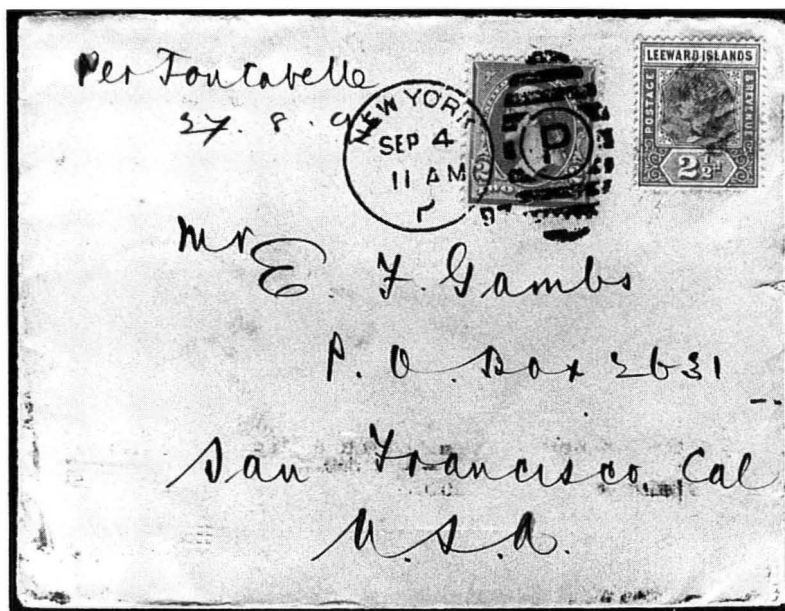 Per Fontabelle
27. 8. 9
NEW YORK
SEP 4
11 AM
P
LEEWARD ISLANDS
POSTAGE
& REVENUE
2½d
Mr E. F. Gambs
P. O. Box 2631
San Francisco, Cal
U.S.A.